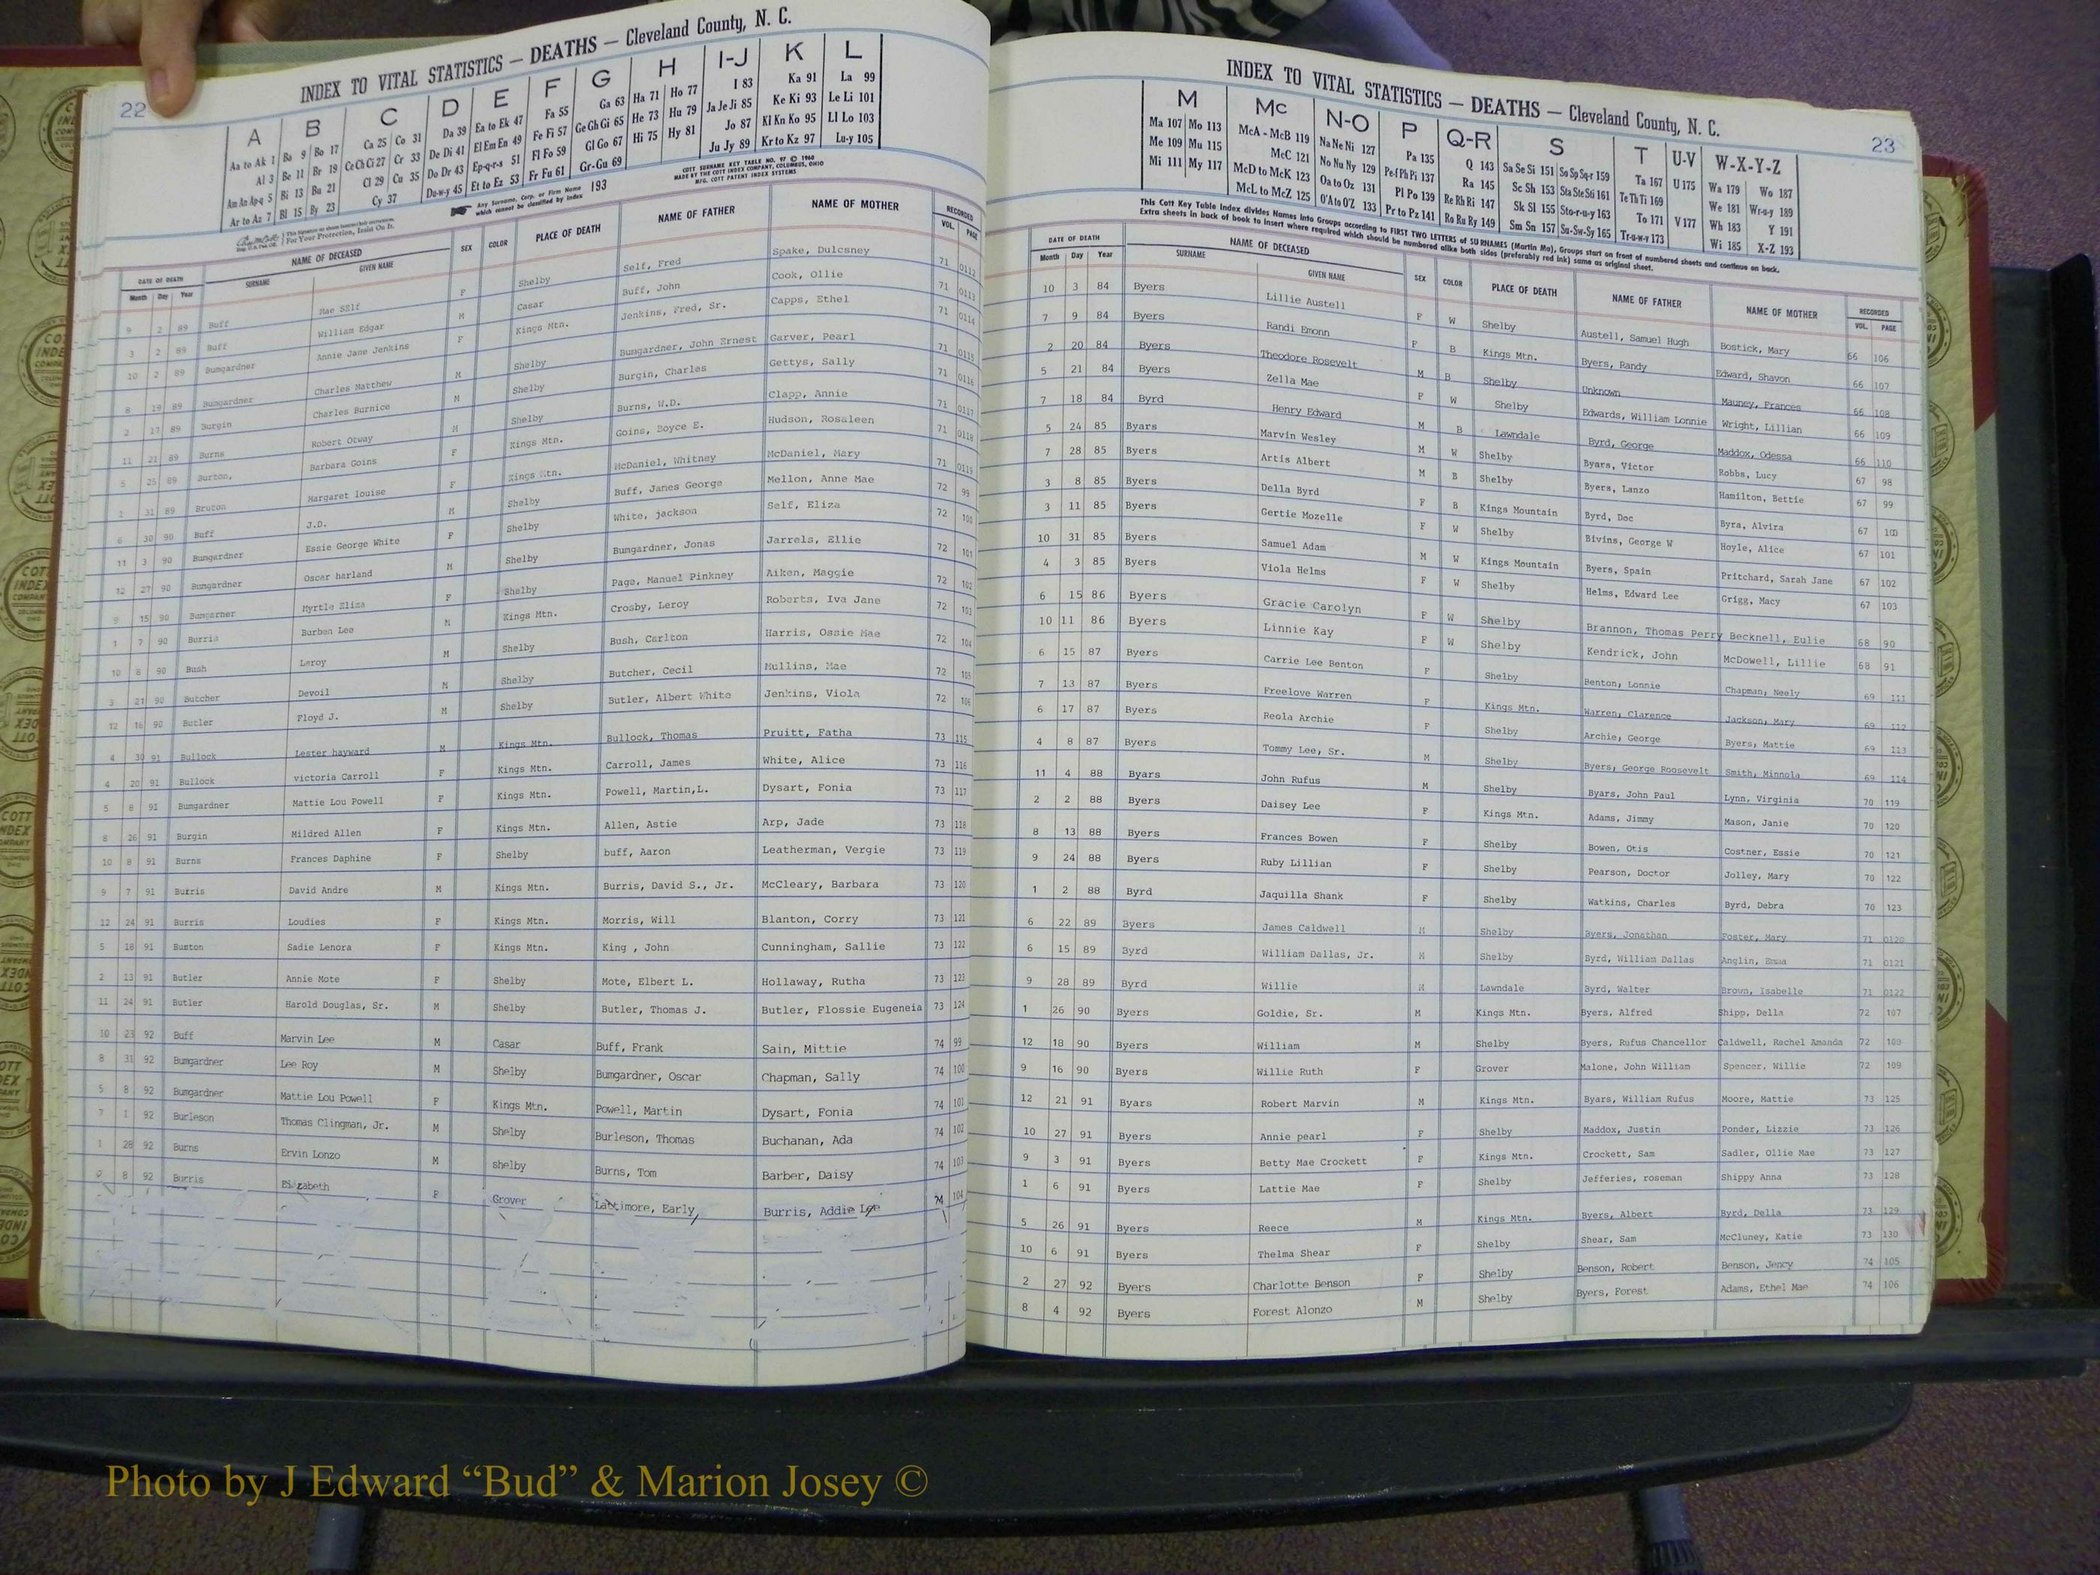 22
INDEX TO VITAL STATISTICS — DEATHS — Cleveland County, N. C.
A B C D E F G H I-J K L
Aa to Ak 1 Ba 9 Bo 17 Ca 25 Co 31 Da 39 Ea to Ek 47 Fa 55 Ga 63 Ha 71 Ho 77 I 83 Ka 91 La 99
Al 3 Be 11 Br 19 Ce Ch Ci 27 Cr 33 De Di 41 El Em En 49 Fe Fi 57 Ge Gh Gi 65 He 73 Hu 79 Ja Je Ji 85 Ke Ki 93 Le Li 101
Am An Ap-q 5 Bi 13 Bu 21 Cl 29 Cu 35 Do Dr 43 Ep-q-r-s 51 Fl Fo 59 Gl Go 67 Hi 75 Hy 81 Jo 87 Kl Kn Ko 95 Ll Lo 103
Ar to Az 7 Bl 15 By 23 Cy 37 Du-w-y 45 Et to Ez 53 Fr Fu 61 Gr-Gu 69 Ju Jy 89 Kr to Kz 97 Lu-y 105
Any Surname, Corp. or Firm Name which cannot be classified by index 193
COTT SURNAME KEY TABLE NO. 97 © 1960
MADE BY THE COTT INDEX COMPANY, COLUMBUS, OHIO
MFG. COTT PATENT INDEX SYSTEMS
For Your Protection, Insist On It.
DATE OF DEATH NAME OF DECEASED SEX COLOR PLACE OF DEATH NAME OF FATHER NAME OF MOTHER RECORDED
Month Day Year SURNAME GIVEN NAME VOL. PAGE
9 2 89 Buff Mae SElf F Shelby Self, Fred Spake, Dulcsney 71 0112
3 2 89 Buff William Edgar M Casar Buff, John Cook, Ollie 71 0113
10 2 89 Bumgardner Annie Jane Jenkins F Kings Mtn. Jenkins, Fred, Sr. Capps, Ethel 71 0114
8 19 89 Bumgardner Charles Matthew M Shelby Bumgardner, John Ernest Garver, Pearl 71 0115
2 17 89 Burgin Charles Burnice M Shelby Burgin, Charles Gettys, Sally 71 0116
11 21 89 Burns Robert Otway M Shelby Burns, W.D. Clapp, Annie 71 0117
5 25 89 Burton, Barbara Goins F Kings Mtn. Goins, Boyce E. Hudson, Rosaleen 71 0118
1 31 89 Bruton Margaret louise F Kings Mtn. McDaniel, Whitney McDaniel, Mary 71 0119
6 30 90 Buff J.D. M Shelby Buff, James George Mellon, Anne Mae 72 99
11 3 90 Bumgardner Essie George White F Shelby White, jackson Self, Eliza 72 100
12 27 90 Bumgardner Oscar harland M Shelby Bumgardner, Jonas Jarrels, Ellie 72 101
9 15 90 Bumgarner Myrtle Eliza F Shelby Page, Manuel Pinkney Aiken, Maggie 72 102
1 7 90 Burris Burben Lee M Kings Mtn. Crosby, Leroy Roberts, Iva Jane 72 103
10 8 90 Bush Leroy M Shelby Bush, Carlton Harris, Ossie Mae 72 104
3 21 90 Butcher Devoil M Shelby Butcher, Cecil Mullins, Mae 72 105
12 16 90 Butler Floyd J. M Shelby Butler, Albert White Jenkins, Viola 72 106
4 30 91 Bullock Lester hayward M Kings Mtn. Bullock, Thomas Pruitt, Fatha 73 115
4 20 91 Bullock victoria Carroll F Kings Mtn. Carroll, James White, Alice 73 116
5 8 91 Bumgardner Mattie Lou Powell F Kings Mtn. Powell, Martin,L. Dysart, Fonia 73 117
8 26 91 Burgin Mildred Allen F Kings Mtn. Allen, Astie Arp, Jade 73 118
10 8 91 Burns Frances Daphine F Shelby buff, Aaron Leatherman, Vergie 73 119
9 7 91 Burris David Andre M Kings Mtn. Burris, David S., Jr. McCleary, Barbara 73 120
12 24 91 Burris Loudies F Kings Mtn. Morris, Will Blanton, Corry 73 121
5 18 91 Burton Sadie Lenora F Kings Mtn. King , John Cunningham, Sallie 73 122
2 13 91 Butler Annie Mote F Shelby Mote, Elbert L. Hollaway, Rutha 73 123
11 24 91 Butler Harold Douglas, Sr. M Shelby Butler, Thomas J. Butler, Flossie Eugeneia 73 124
10 23 92 Buff Marvin Lee M Casar Buff, Frank Sain, Mittie 74 99
8 31 92 Bumgardner Lee Roy M Shelby Bumgardner, Oscar Chapman, Sally 74 100
5 8 92 Bumgardner Mattie Lou Powell F Kings Mtn. Powell, Martin Dysart, Fonia 74 101
7 1 92 Burleson Thomas Clingman, Jr. M Shelby Burleson, Thomas Buchanan, Ada 74 102
1 28 92 Burns Ervin Lonzo M shelby Burns, Tom Barber, Daisy 74 103
8 92 Burris Elizabeth F Grover Lattimore, Early Burris, Addie Lee 74 104
23
INDEX TO VITAL STATISTICS — DEATHS — Cleveland County, N. C.
M Mc N-O P Q-R S T U-V W-X-Y-Z
Ma 107 Mo 113 McA - McB 119 Na Ne Ni 127 Pa 135 Q 143 Sa Se Si 151 So Sp Sq-r 159 Ta 167 U 175 Wa 179 Wo 187
Me 109 Mu 115 McC 121 No Nu Ny 129 Pe-f Ph Pi 137 Ra 145 Sc Sh 153 Sta Ste Sti 161 Te Th Ti 169 We 181 Wr-u-y 189
Mi 111 My 117 McD to McK 123 Oa to Oz 131 Pl Po 139 Re Rh Ri 147 Sk Sl 155 Sto-r-u-y 163 To 171 V 177 Wh 183 Y 191
McL to McZ 125 O'A to O'Z 133 Pr to Pz 141 Ro Ru Ry 149 Sm Sn 157 Su-Sw-Sy 165 Tr-u-w-y 173 Wi 185 X-Z 193
This Cott Key Table Index divides Names into Groups according to FIRST TWO LETTERS of SURNAMES (Martin Ma). Groups start on front of numbered sheets and continue on back.
Extra sheets in back of book to insert where required which should be numbered alike both sides (preferably red ink) same as original sheet.
DATE OF DEATH NAME OF DECEASED SEX COLOR PLACE OF DEATH NAME OF FATHER NAME OF MOTHER RECORDED
Month Day Year SURNAME GIVEN NAME VOL. PAGE
10 3 84 Byers Lillie Austell F W Shelby Austell, Samuel Hugh Bostick, Mary 66 106
7 9 84 Byers Randi Emonn F B Kings Mtn. Byers, Randy Edward, Shavon 66 107
2 20 84 Byers Theodore Rosevelt M B Shelby Unknown Mauney, Frances 66 108
5 21 84 Byers Zella Mae F W Shelby Edwards, William Lonnie Wright, Lillian 66 109
7 18 84 Byrd Henry Edward M B Lawndale Byrd, George Maddox, Odessa 66 110
5 24 85 Byars Marvin Wesley M W Shelby Byars, Victor Robbs, Lucy 67 98
7 28 85 Byers Artis Albert M B Shelby Byers, Lanzo Hamilton, Bettie 67 99
3 8 85 Byers Della Byrd F B Kings Mountain Byrd, Doc Byra, Alvira 67 100
3 11 85 Byers Gertie Mozelle F W Shelby Bivins, George W Hoyle, Alice 67 101
10 31 85 Byers Samuel Adam M W Kings Mountain Byers, Spain Pritchard, Sarah Jane 67 102
4 3 85 Byers Viola Helms F W Shelby Helms, Edward Lee Grigg, Macy 67 103
6 15 86 Byers Gracie Carolyn F W Shelby Brannon, Thomas Perry Becknell, Eulie 68 90
10 11 86 Byers Linnie Kay F W Shelby Kendrick, John McDowell, Lillie 68 91
6 15 87 Byers Carrie Lee Benton F Shelby Benton, Lonnie Chapman, Neely 69 111
7 13 87 Byers Freelove Warren F Kings Mtn. Warren, Clarence Jackson, Mary 69 112
6 17 87 Byers Reola Archie F Shelby Archie, George Byers, Mattie 69 113
4 8 87 Byers Tommy Lee, Sr. M Shelby Byers, George Roosevelt Smith, Minnola 69 114
11 4 88 Byars John Rufus M Shelby Byars, John Paul Lynn, Virginia 70 119
2 2 88 Byers Daisey Lee F Kings Mtn. Adams, Jimmy Mason, Janie 70 120
8 13 88 Byers Frances Bowen F Shelby Bowen, Otis Costner, Essie 70 121
9 24 88 Byers Ruby Lillian F Shelby Pearson, Doctor Jolley, Mary 70 122
1 2 88 Byrd Jaquilla Shank F Shelby Watkins, Charles Byrd, Debra 70 123
6 22 89 Byers James Caldwell M Shelby Byers, Jonathan Foster, Mary 71 0120
6 15 89 Byrd William Dallas, Jr. M Shelby Byrd, William Dallas Anglin, Emma 71 0121
9 28 89 Byrd Willie M Lawndale Byrd, Walter Brown, Isabelle 71 0122
1 26 90 Byers Goldie, Sr. M Kings Mtn. Byers, Alfred Shipp, Della 72 107
12 18 90 Byers William M Shelby Byers, Rufus Chancellor Caldwell, Rachel Amanda 72 108
9 16 90 Byers Willie Ruth F Grover Malone, John William Spencer, Willie 72 109
12 21 91 Byars Robert Marvin M Kings Mtn. Byars, William Rufus Moore, Mattie 73 125
10 27 91 Byers Annie pearl F Shelby Maddox, Justin Ponder, Lizzie 73 126
9 3 91 Byers Betty Mae Crockett F Kings Mtn. Crockett, Sam Sadler, Ollie Mae 73 127
1 6 91 Byers Lattie Mae F Shelby Jefferies, roseman Shippy Anna 73 128
5 26 91 Byers Reece M Kings Mtn. Byers, Albert Byrd, Della 73 129
10 6 91 Byers Thelma Shear F Shelby Shear, Sam McCluney, Katie 73 130
2 27 92 Byers Charlotte Benson F Shelby Benson, Robert Benson, Jency 74 105
8 4 92 Byers Forest Alonzo M Shelby Byers, Forest Adams, Ethel Mae 74 106
Photo by J Edward “Bud” & Marion Josey ©